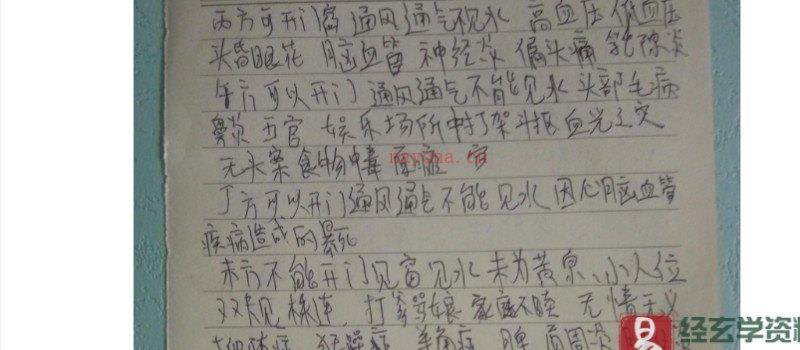 丙方可开门窗通风通气不见水 高血压低血压
头昏眼花 脑血管 神经炎 偏头痛 乳腺炎
午方可以开门通风通气不能见水头部毛病
五官 娱乐场所中打架斗抠血光之灾
无头案食物中毒
丁方可以开门通风通气不能见水因心脑血管
疾病造成的暴死
未方不能开门见窗见水未为黄泉、小人位
打爹骂娘家庭不睦 无情无义
狂躁症 羊角疯 脾 肩周炎
易 经玄学资料